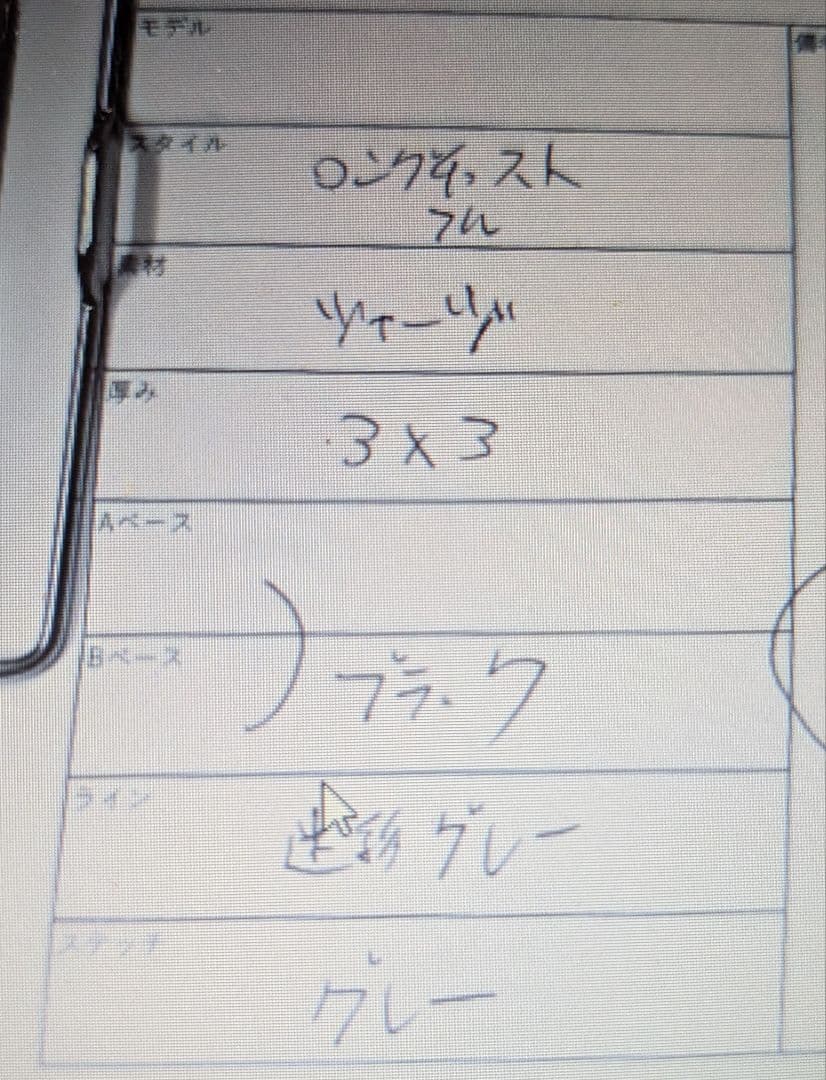 モデル
スタイル
ロングチェスト
フル
素材
ジャージ
厚み
3×3
Aベース
Bベース
ブラック
ライン
グレー
ステッチ
グレー